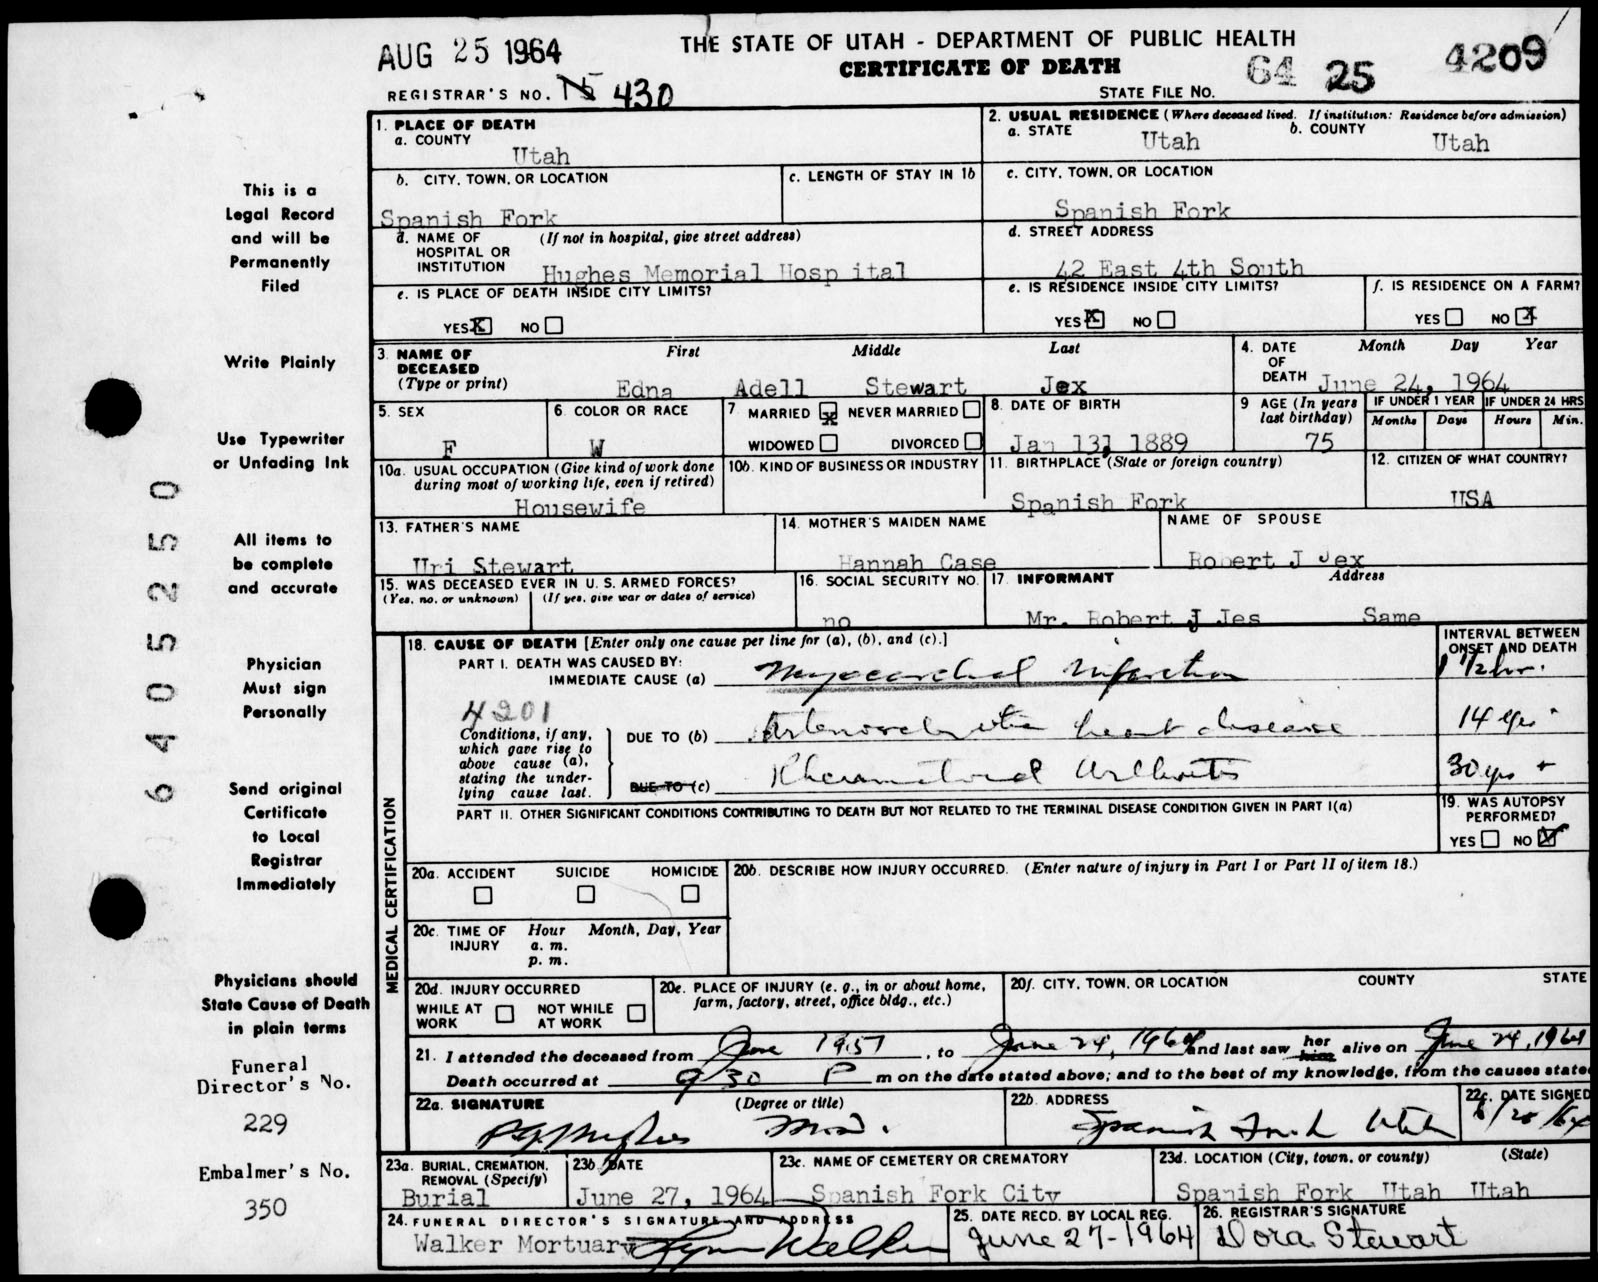 AUG 25 1964
THE STATE OF UTAH - DEPARTMENT OF PUBLIC HEALTH
CERTIFICATE OF DEATH
REGISTRAR'S NO. 430
STATE FILE NO. 64 25 4209
This is a
Legal Record
and will be
Permanently
Filed
Write Plainly
Use Typewriter
or Unfading Ink
All items to
be complete
and accurate
Physician
Must sign
Personally
Send original
Certificate
to Local
Registrar
Immediately
Physicians should
State Cause of Death
in plain terms
Funeral
Director's No.
229
Embalmer's No.
350
6405250
1. PLACE OF DEATH
a. COUNTY
Utah
2. USUAL RESIDENCE (Where deceased lived. If institution: Residence before admission)
a. STATE Utah b. COUNTY Utah
b. CITY, TOWN, OR LOCATION
Spanish Fork
c. LENGTH OF STAY IN 1b
c. CITY, TOWN, OR LOCATION
Spanish Fork
d. NAME OF (If not in hospital, give street address)
HOSPITAL OR
INSTITUTION Hughes Memorial Hosp ital
d. STREET ADDRESS
42 East 4th South
e. IS PLACE OF DEATH INSIDE CITY LIMITS?
YES X NO
e. IS RESIDENCE INSIDE CITY LIMITS?
YES X NO
f. IS RESIDENCE ON A FARM?
YES NO X
3. NAME OF First Middle Last
DECEASED
(Type or print) Edna Adell Stewart Jex
4. DATE Month Day Year
OF
DEATH June 24, 1964
5. SEX
F
6. COLOR OR RACE
W
7. MARRIED X NEVER MARRIED
WIDOWED DIVORCED
8. DATE OF BIRTH
Jan 13, 1889
9 AGE (In years
last birthday)
75
IF UNDER 1 YEAR IF UNDER 24 HRS
Months Days Hours Min.
10a. USUAL OCCUPATION (Give kind of work done
during most of working life, even if retired)
Housewife
10b. KIND OF BUSINESS OR INDUSTRY
11. BIRTHPLACE (State or foreign country)
Spanish Fork
12. CITIZEN OF WHAT COUNTRY?
USA
13. FATHER'S NAME
Uri Stewart
14. MOTHER'S MAIDEN NAME
Hannah Case
NAME OF SPOUSE
Robert J Jex
15. WAS DECEASED EVER IN U. S. ARMED FORCES?
(Yes, no, or unknown) (If yes, give war or dates of service)
16. SOCIAL SECURITY NO.
no
17. INFORMANT Address
Mr. Robert J Jes Same
MEDICAL CERTIFICATION
18. CAUSE OF DEATH [Enter only one cause per line for (a), (b), and (c).]
INTERVAL BETWEEN
ONSET AND DEATH
PART I. DEATH WAS CAUSED BY:
IMMEDIATE CAUSE (a) Myocardial Infarction 1 1/2 hr.
4201
Conditions, if any,
which gave rise to
above cause (a),
stating the under-
lying cause last.
DUE TO (b) Arteriosclerotic heart disease 14 yrs
DUE TO (c) Rheumatoid Arthritis 30 yrs +
PART II. OTHER SIGNIFICANT CONDITIONS CONTRIBUTING TO DEATH BUT NOT RELATED TO THE TERMINAL DISEASE CONDITION GIVEN IN PART I(a)
19. WAS AUTOPSY
PERFORMED?
YES NO
20a. ACCIDENT SUICIDE HOMICIDE
20b. DESCRIBE HOW INJURY OCCURRED. (Enter nature of injury in Part I or Part II of item 18.)
20c. TIME OF Hour Month, Day, Year
INJURY a. m.
p. m.
20d. INJURY OCCURRED
WHILE AT NOT WHILE
WORK AT WORK
20e. PLACE OF INJURY (e. g., in or about home,
farm, factory, street, office bldg., etc.)
20f. CITY, TOWN, OR LOCATION COUNTY STATE
21. I attended the deceased from June 1957, to June 24, 1964 and last saw her him alive on June 24, 1964
Death occurred at 9 30 P m on the date stated above; and to the best of my knowledge, from the causes state
22a. SIGNATURE (Degree or title)
Hughes M.D.
22b. ADDRESS
Spanish Fork Utah
22c. DATE SIGNED
23a. BURIAL, CREMATION,
REMOVAL (Specify)
Burial
23b. DATE
June 27, 1964
23c. NAME OF CEMETERY OR CREMATORY
Spanish Fork City
23d. LOCATION (City, town, or county) (State)
Spanish Fork Utah Utah
24. FUNERAL DIRECTOR'S SIGNATURE AND ADDRESS
Walker Mortuary Walker
25. DATE RECD. BY LOCAL REG.
June 27-1964
26. REGISTRAR'S SIGNATURE
Dora Stewart